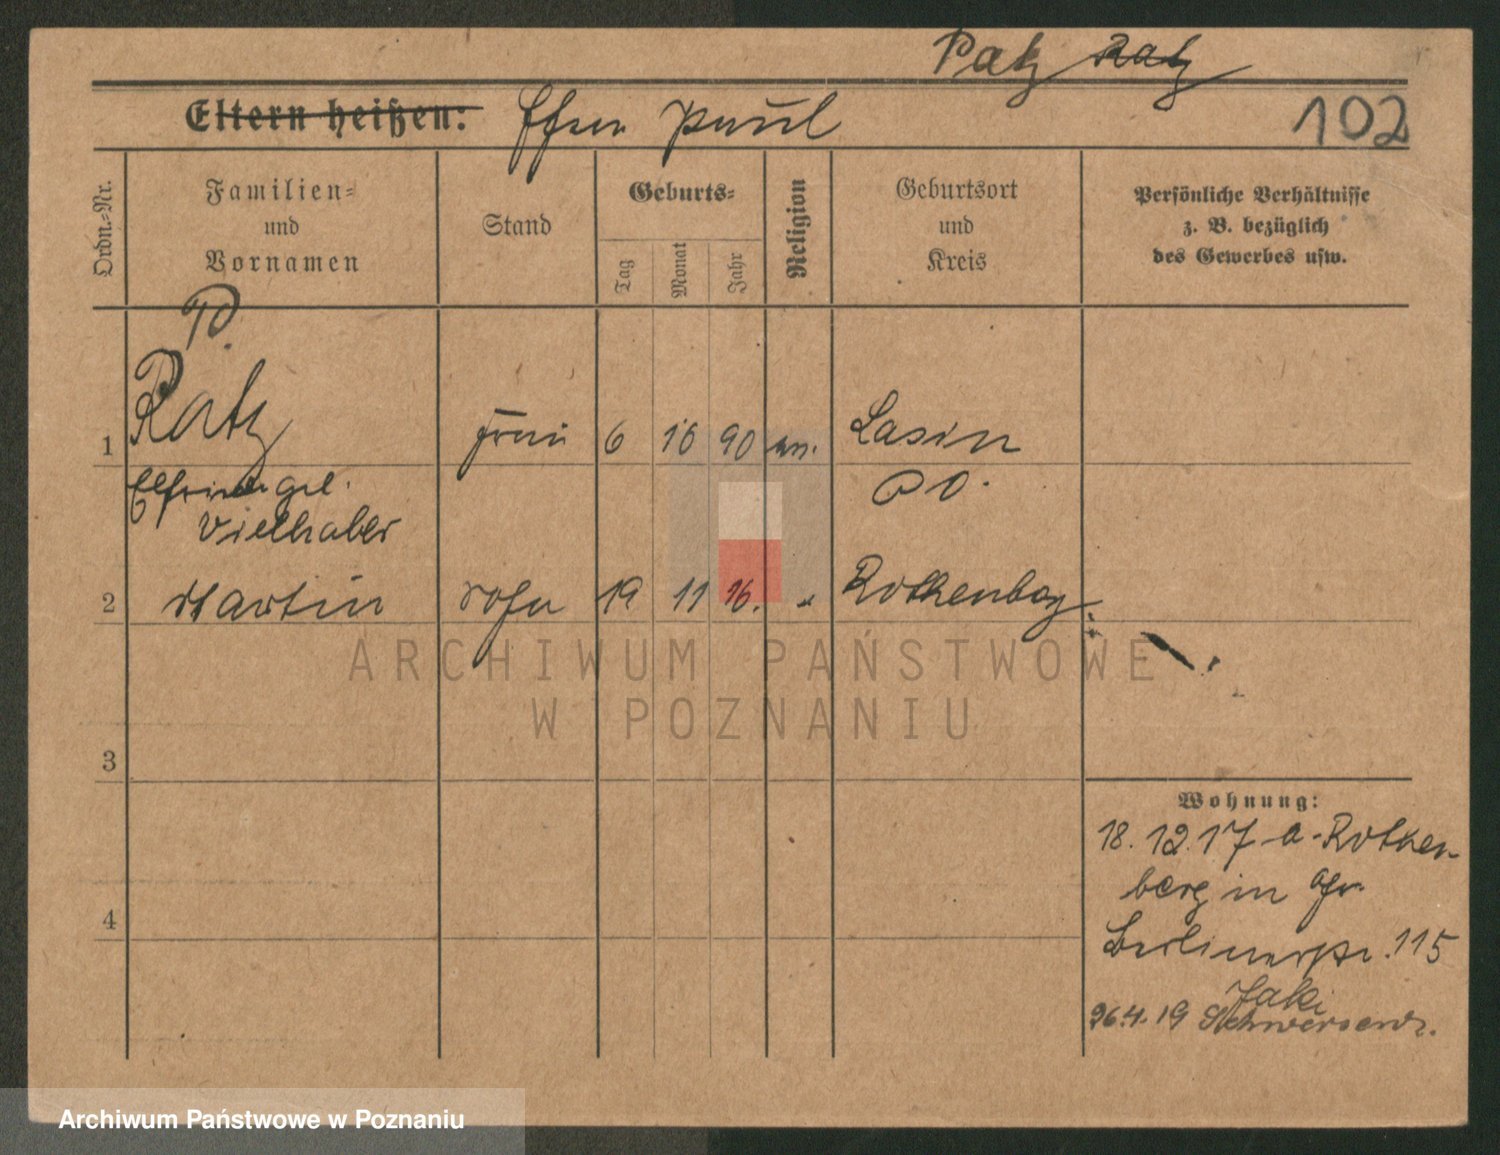 Patz Ratz
Eltern heißen: Paul
102
Ordn.-Nr.
Familien-
und
Vornamen
Stand
Geburts-
Tag
Monat
Jahr
Religion
Geburtsort
und
Kreis
Persönliche Verhältnisse
z. B. bezüglich
des Gewerbes usw.
P.
1 Ratz Frau 6 10 90 Lasin
Vielhaber
P O.
2 Martin Sohn 19 11 16. " Rothenbg
ARCHIWUM PAŃSTWOWE
W POZNANIU
3
4
Wohnung:
18. 12. 17 a. Rothen-
berg in
Berlinerstr. 115
26.4.19 Schwersenz.
Archiwum Państwowe w Poznaniu